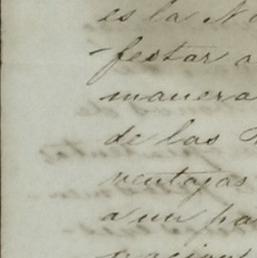 es la
festar a
manera
de las
ventajas
a un pa